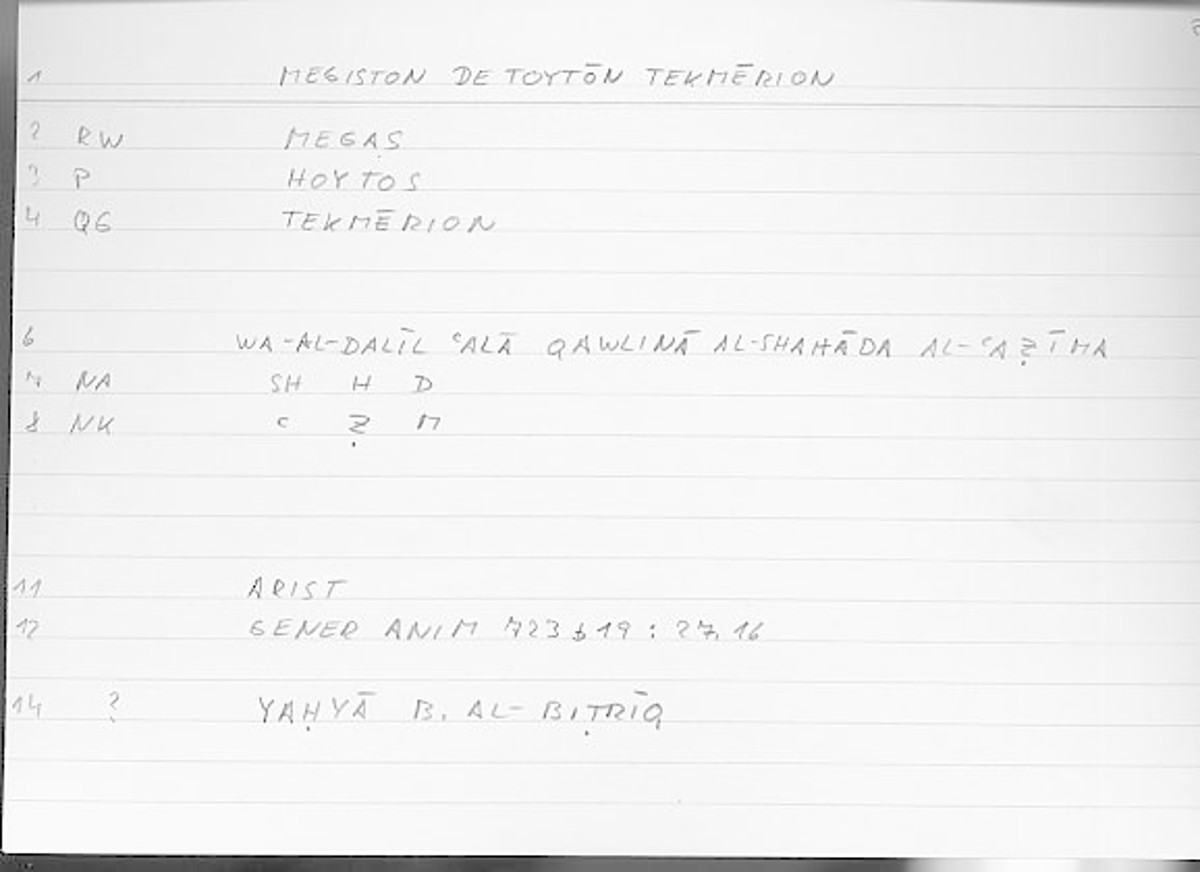 1 MEGISTON DE TOYTŌN TEKMĒRION
2 RW MEGAS
3 P HOYTOS
4 QG TEKMĒRION
6 WA-AL-DALĪL ʿALĀ QAWLINĀ AL-SHAHĀDA AL-ʿAẒĪMA
7 NA SH H D
8 NK ʿ Ẓ M
11 ARIST
12 GENER ANIM 723b19 : 27,16
14 ? YAḤYĀ B. AL-BIṬRĪQ